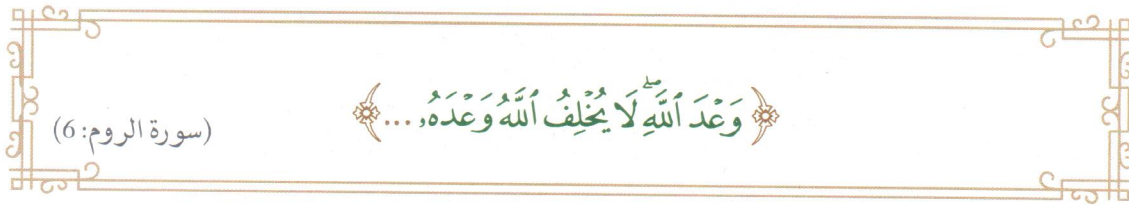 ﴿ وَعْدَ ٱللَّهِۖ لَا يُخْلِفُ ٱللَّهُ وَعْدَهُۥ ... ﴾ (سورة الروم: 6)